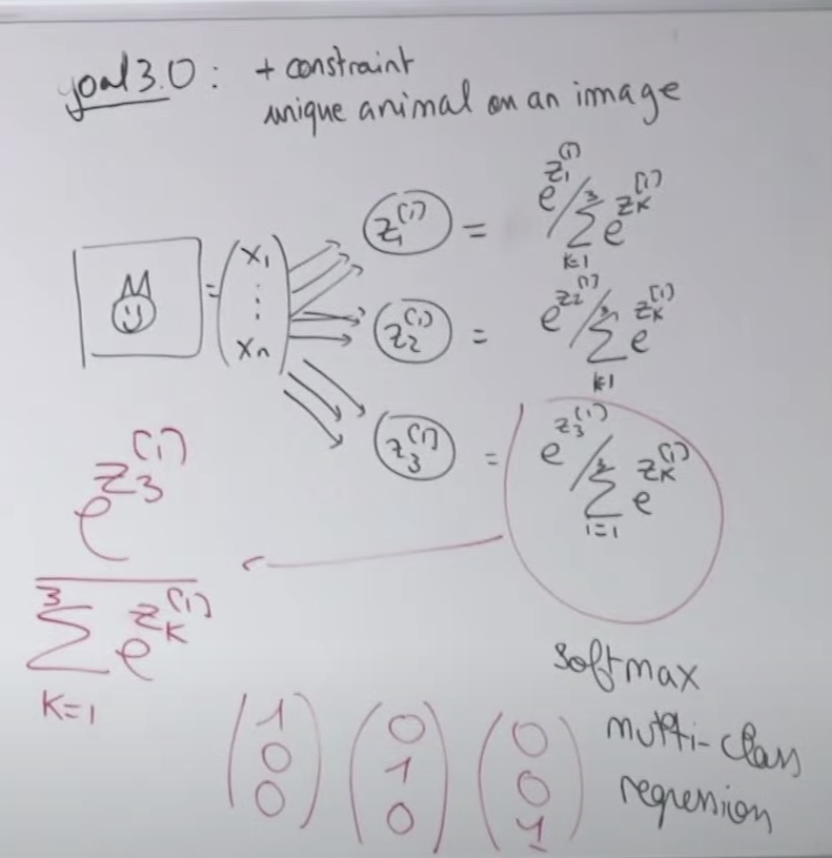 goal 3.0 : + constraint
unique animal on an image
(x₁ ⋮ xₙ)
z₁⁽¹⁾ = e^{z₁⁽¹⁾} / ∑_{k=1}^{3} e^{z_K⁽¹⁾}
z₂⁽¹⁾ = e^{z₂⁽¹⁾} / ∑_{k=1}^{3} e^{z_K⁽¹⁾}
z₃⁽¹⁾ = e^{z₃⁽¹⁾} / ∑_{i=1}^{3} e^{z_K⁽¹⁾}
e^{z₃⁽¹⁾}
∑_{K=1}^{3} e^{z_K⁽¹⁾}
softmax
multi-class
regression
1 0 0
0 1 0
0 0 1